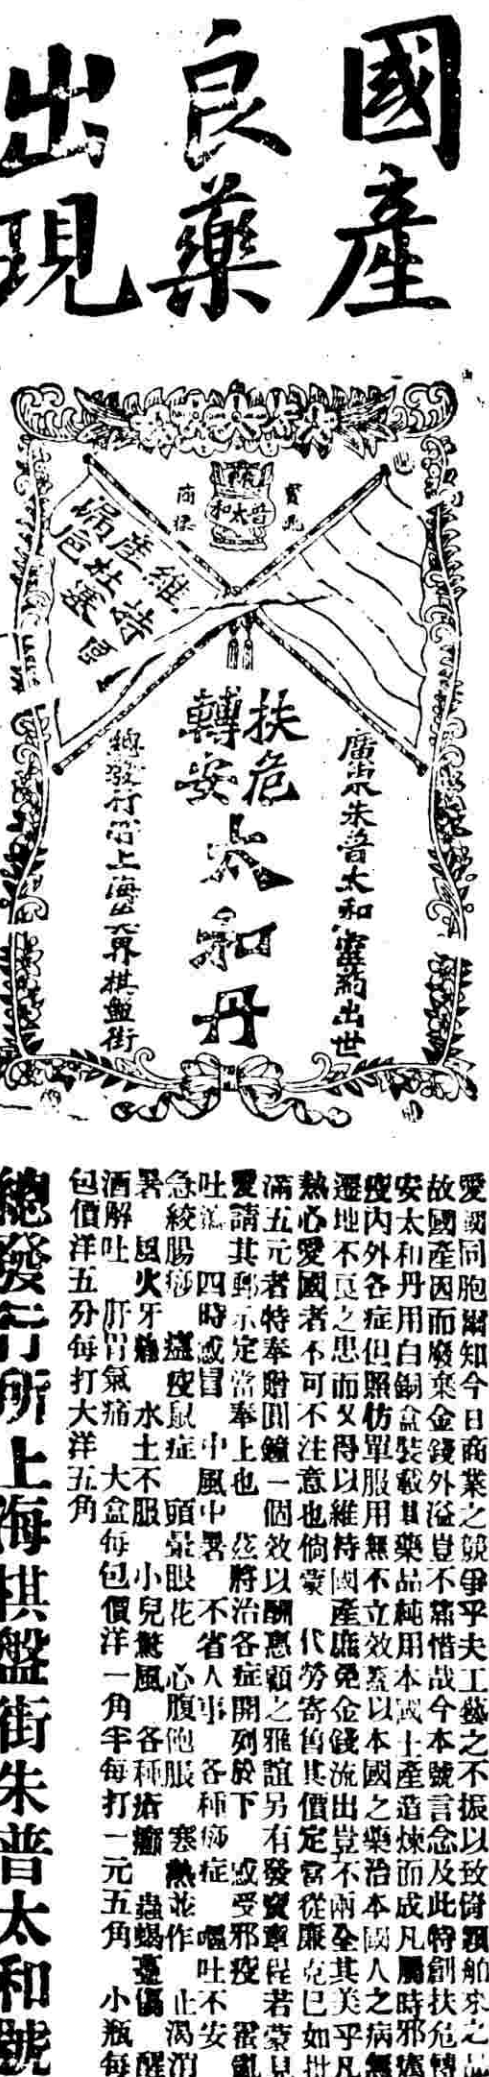 國產
良藥
出現
寶鼎
商標
普太和
維持
產杜
漏塞
危
扶危
轉安
太和丹
廣東朱普太和靈葯出世
總發行所上海英大界棋盤街
愛國同胞爾知今日商業之競爭乎夫工藝之不振以致倚賴舶來之品
故國產因而廢棄金錢外溢豈不痛惜哉今本號言念及此特創扶危轉
安太和丹用白銅盒裝載其藥品純用本國土產造煉而成凡屬時邪瘟
疫內外各症但照仿單服用無不立效蓋以本國之藥治本國人之病無
遷地不良之患而又得以維持國產庶免金錢流出豈不兩全其美乎凡
熱心愛國者不可不注意也倘蒙 代勞寄售其價定當從廉克己如批
滿五元者特奉贈鬧鐘一個效以酬惠顧之雅誼另有發賣章程若蒙見
愛請其郵示定當奉上也 茲將治各症開列於下 感受邪疫 霍亂
吐瀉 四時感冒 中風中暑 不省人事 各種痧症 嘔吐不安
急絞腸痧 瘟疫鼠症 頭暈眼花 心腹飽脹 寒熱並作 止渴消
暑 風火牙痛 水土不服 小兒驚風 各種瘡癤 蟲蝎蠆傷 醒
酒解吐 肝胃氣痛 大盒每包價洋一角半每打一元五角 小瓶每
包價洋五分每打大洋五角
總發行所上海棋盤街朱普太和號